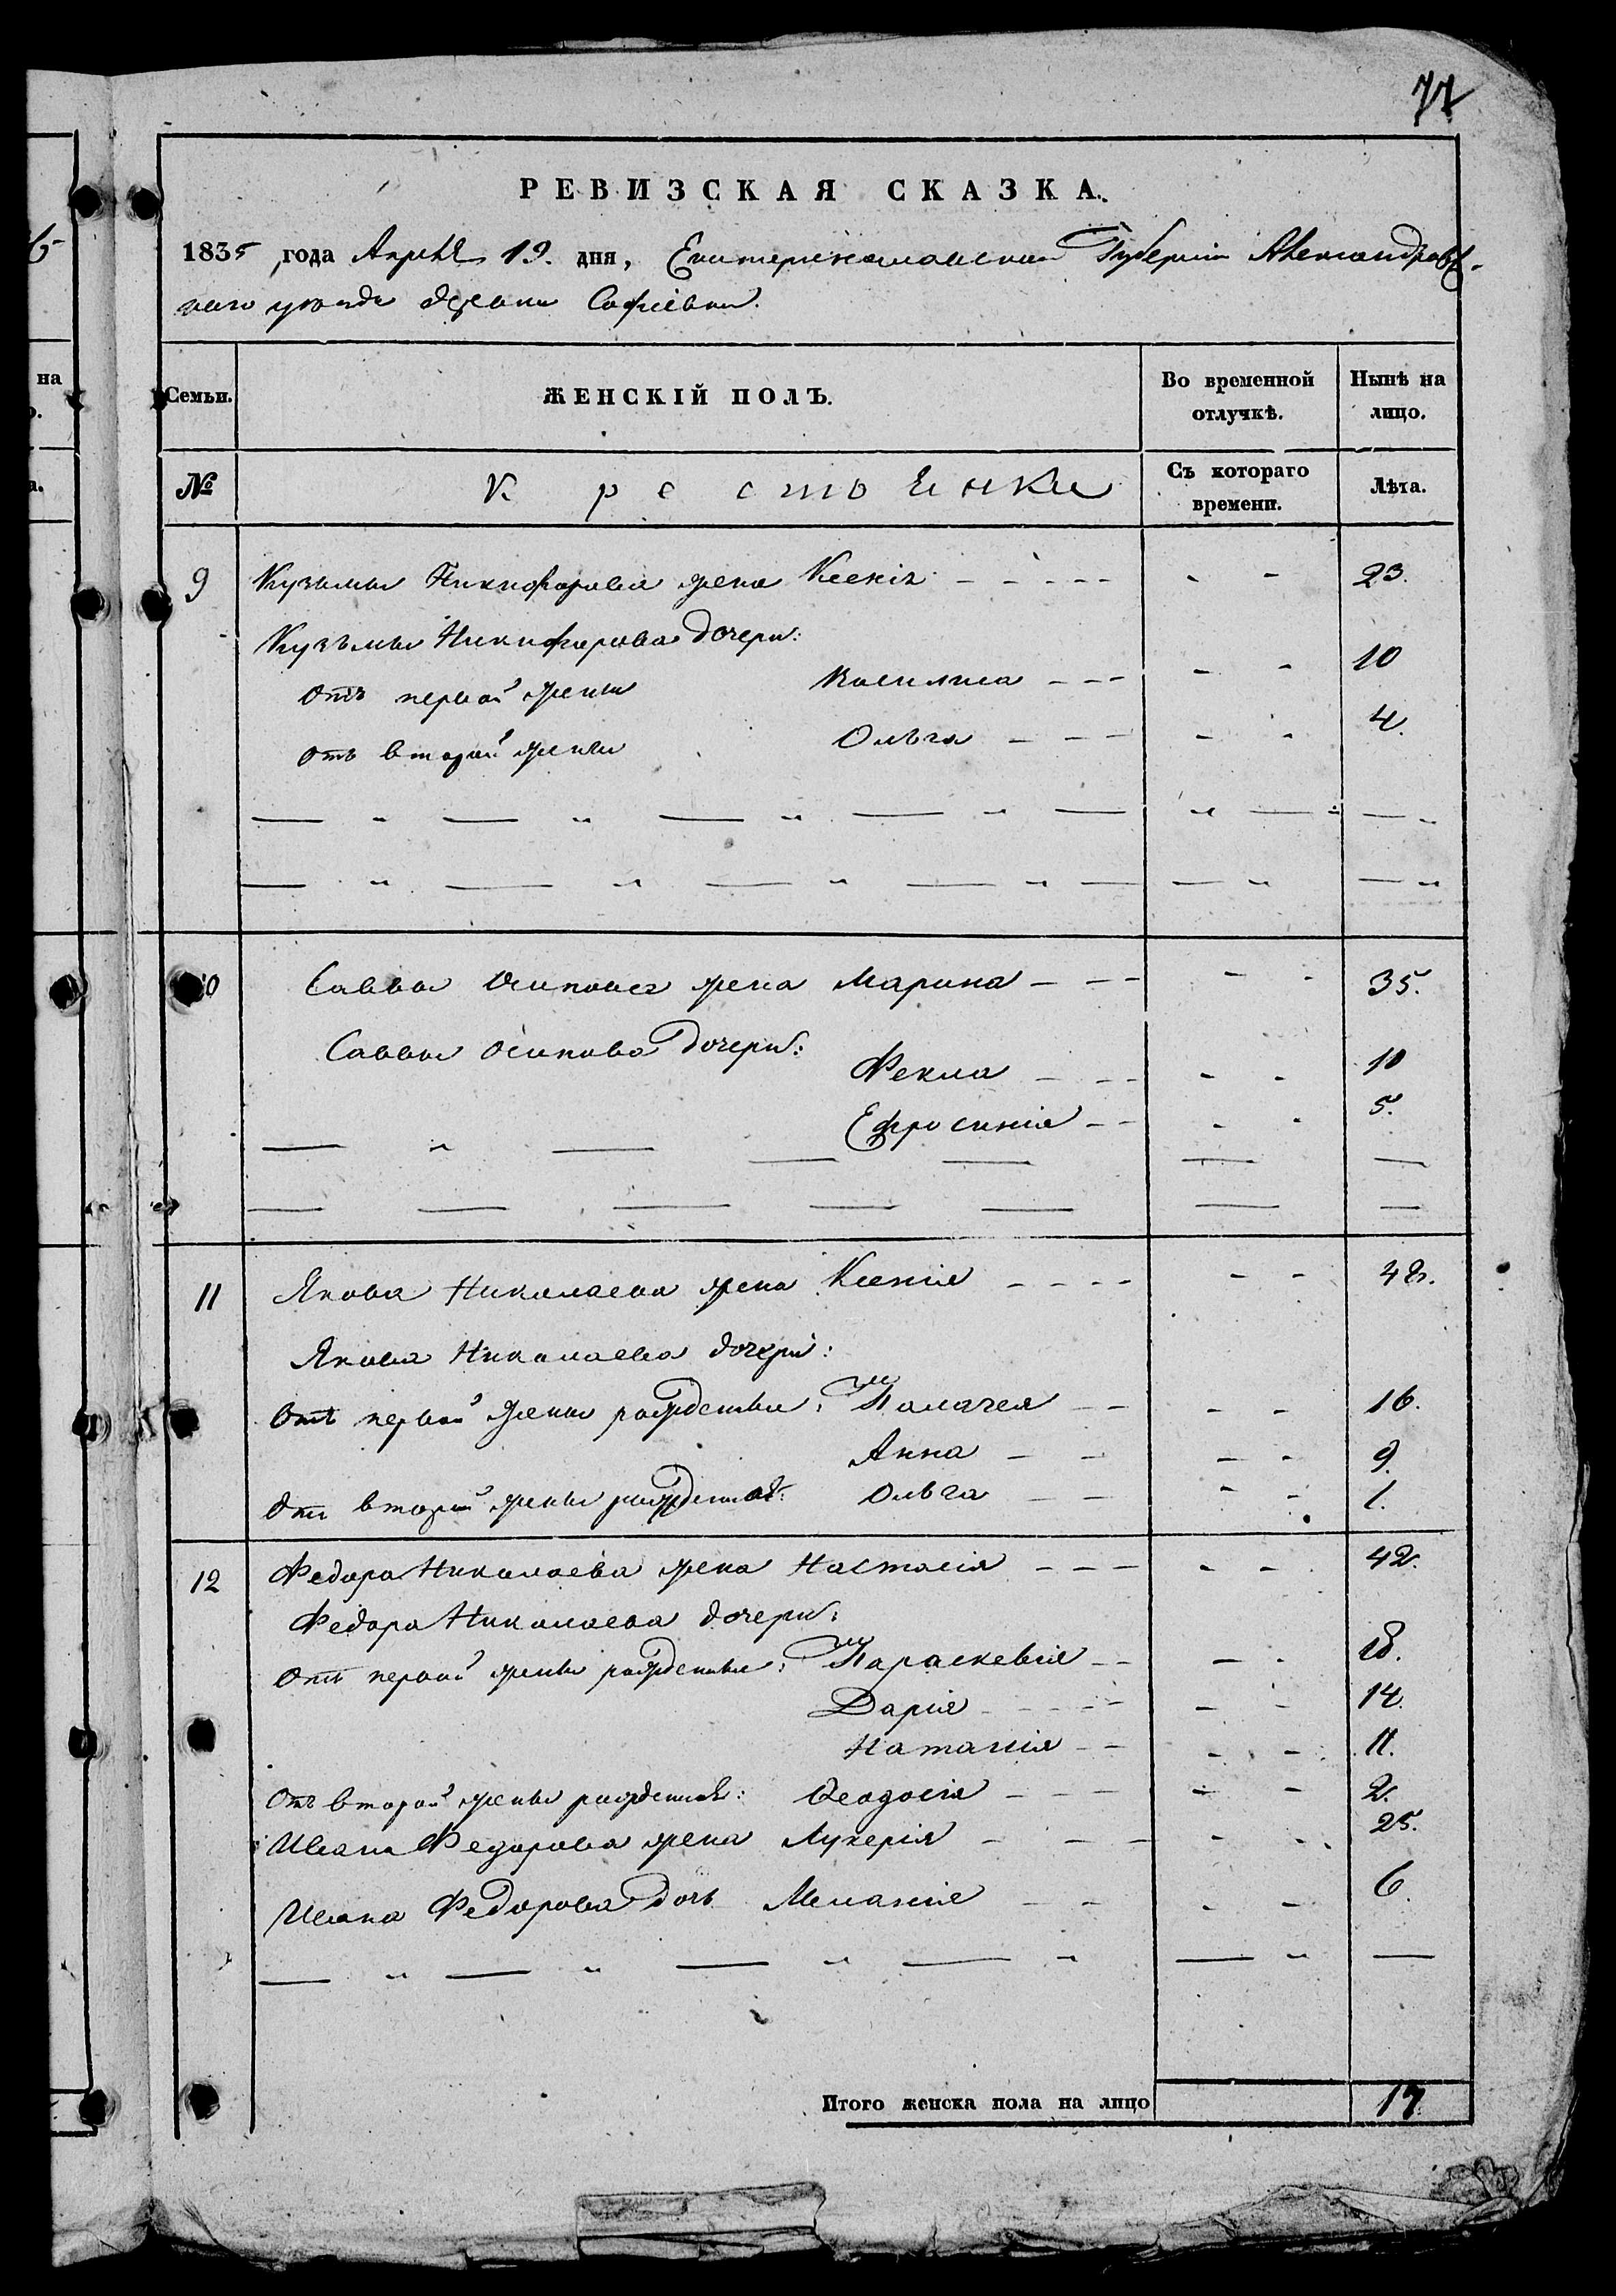 77
РЕВИЗСКАЯ СКАЗКА.
1835 года Апрѣля 19. дня, Екатеринославской Губерніи Александровс-
каго уѣзда деревни Софіевки.
Семьи. ЖЕНСКІЙ ПОЛЪ. Во временной отлучкѣ. Нынѣ на лицо.
№ Крестьянки Съ котораго времени. Лѣта.
9 Кузьмы Никифорова жена Ксенія - - - - - - 23.
Кузьмы Никифорова дочери:
отъ первой жены Василиса - - - - - 10
отъ второй жены Ольга - - - - - 4.
10 Саввы Осипова жена Марина - - - - - 35.
Саввы Осипова дочери:
Фекла - - - - - 10
Ефросинія - - - - 5.
11 Якова Николаева жена Ксенія - - - - - - 42.
Якова Николаева дочери:
отъ первой жены рожденныя: Палагея - - - - 16.
Анна - - - - 9.
отъ второй жены рожденная: Ольга - - - - 1.
12 Федора Николаева жена Настасія - - - - - 42.
Федора Николаева дочери:
отъ первой жены рожденныя: Параскевія - - - - 18.
Дарія - - - - - - 14.
Наталія - - - - 11.
отъ второй жены рожденная: Феодосія - - - - - 2.
Ивана Федорова жена Лукерія - - - - - 25.
Ивана Федорова дочь Меланія - - - - 6.
Итого женска пола на лицо 17
на